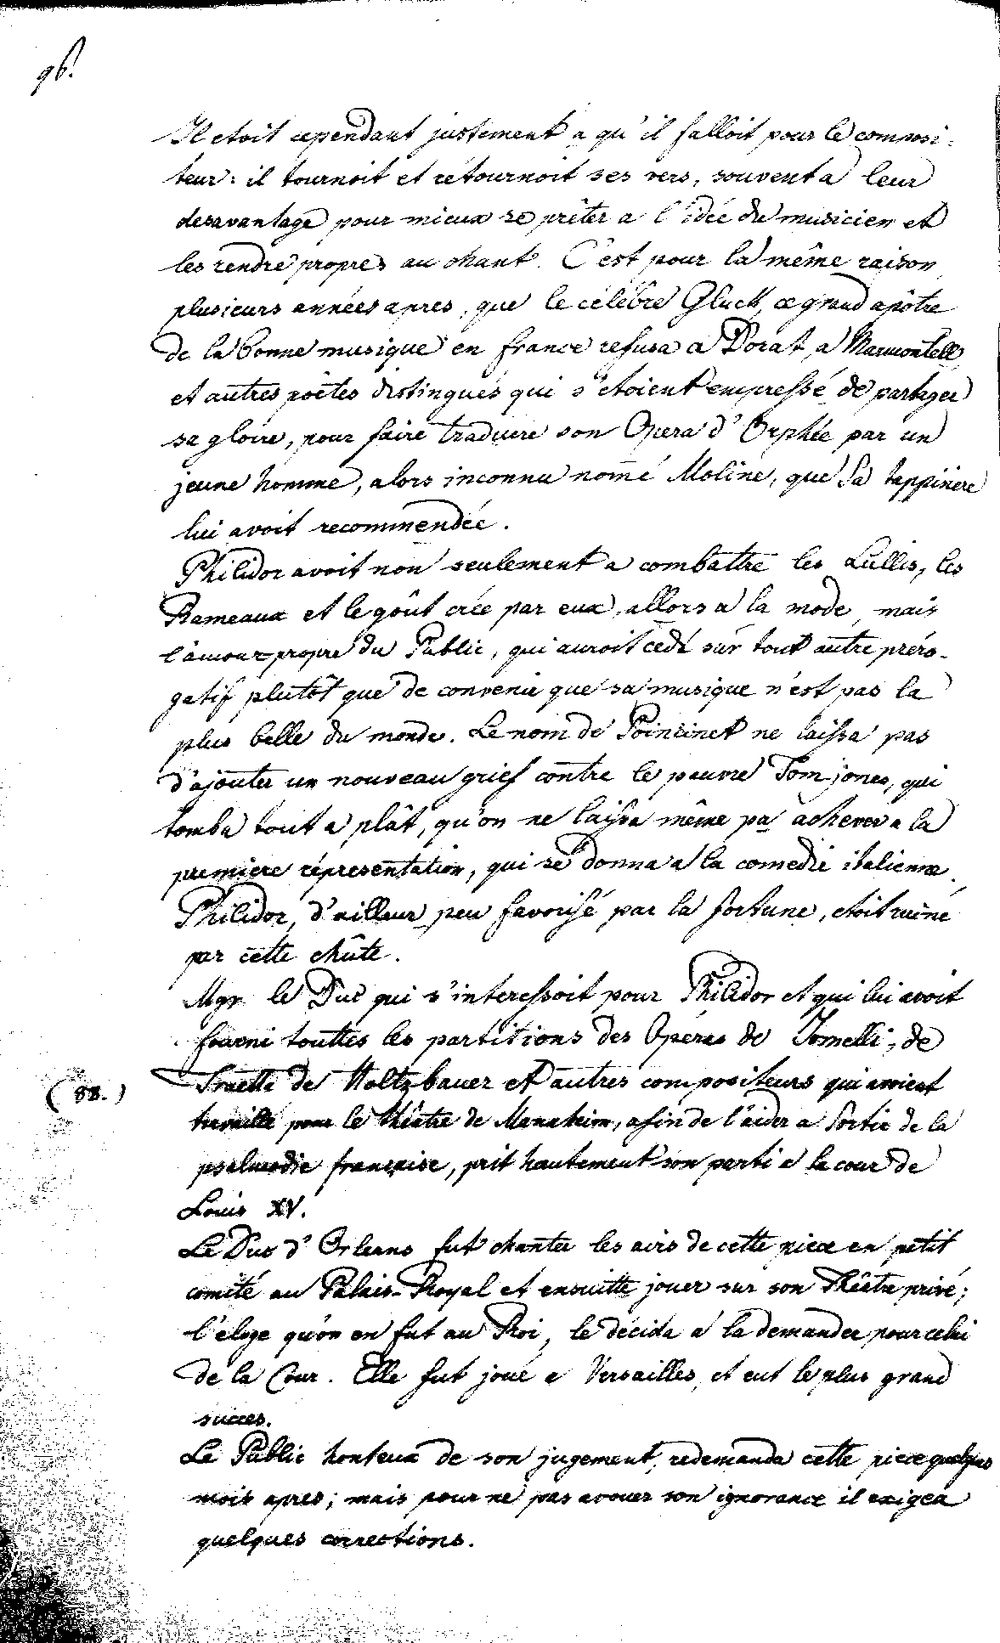 96.
Il etoit cependant justement a qu'il falloit pour le composi-
teur: il tournoit et rétournoit ses vers, souvent a leur
desavantage pour mieux se prêter a l'idée du musicien et
les rendre propres au chant. C'est pour la même raison
plusieurs années apres, que le célébre Gluck, ce grand apôtre
de la bonne musique en france refusa a Dorat, a Marmontell
et autres poëtes distingués qui s'etoient empressé de partager
sa gloire, pour faire traduire son Opera d'Orphée par un
jeune homme, alors inconnu nomé Moline, que la
lui avoit recommendée.
Philidor avoit non seulement a combattre les Lullis, les
Rameaux et le goût crée par eux, allors a la mode, mais
l'amour propre du Public, qui auroit cedé sur tout autre préro-
gatif plutôt que de convenir que sa musique n'est pas la
plus belle du monde. Le nom de Poincinet ne laissa pas
d'ajouter un nouveau grief contre le pauvre Tom jones, qui
tomba tout a plât, qu'on ne laissa même pas achever a la
premiere répresentation, qui se donna a la comedie italienne.
Philidor, d'ailleur peu favorisé par la fortune, etoit ruiné
par cette chûte.
Mgr. le Duc qui s'interessoit pour Philidor et qui lui avoit
fourni touttes les partitions des Opéras de Jomelli, de
(88.)
Traetta de Holtzbauer et autres compositeurs qui avoient
travaillé pour le théatre de Manheim, afin de l'aider a sortir de la
psalmodie françaíse, prit hautement son parti a la cour de
Louis XV.
Le Duc d'Orleans fut chanter les airs de cette piece en petit
comité au Palais-Royal et ensuitte jouer sur son Théâtre privé;
l'éloge qu'on en fut au Roi, le décida a la demander pour celui
de la Cour. Elle fut joué a Versailles, et eut le plus grand
succes.
Le Public honteux de son jugement, redemanda cette piece quelques
mois apres; mais pour ne pas avouer son ignorance il exigea
quelques corrections.